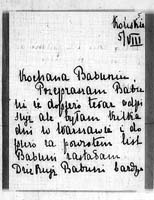 Końskie
5/VIII
Kochana Babuniu.
Przepraszam Babu
ni że dopiero teraz odpi
suję ale byłam kilka
dni w Warszawie i do
piero za powrotem list
Babuni zastałam
Dziękuję Babuni bardzo